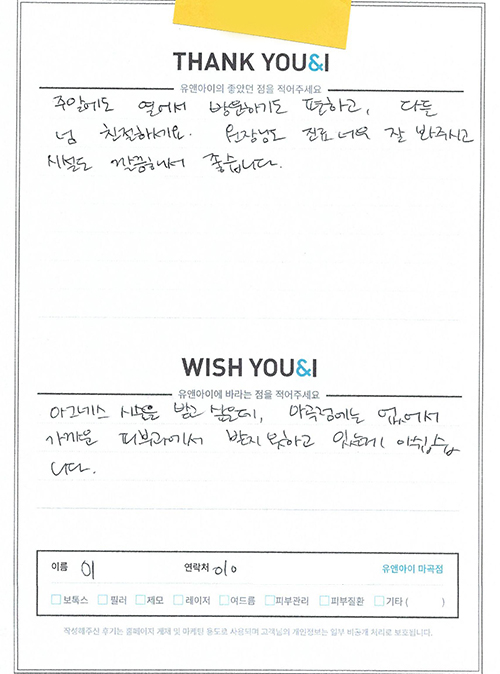 THANK YOU&I
유앤아이의 좋았던 점을 적어주세요
주말에도 열어서 방문하기도 편하고, 다들
넘 친절하세요. 원장님도 진료 너무 잘 봐주시고
시설도 깔끔해서 좋습니다.
WISH YOU&I
유앤아이에 바라는 점을 적어주세요
아그네스 시술을 받고 싶은데, 마곡점에는 없어서
가까운 피부과에서 받지 못하고 있는게 아쉽습
니다.
이름 이 연락처 010 유앤아이 마곡점
보톡스 필러 제모 레이저 여드름 피부관리 피부질환 기타 ( )
작성해주신 후기는 홈페이지 게재 및 마케팅 용도로 사용되며 고객님의 개인정보는 일부 비공개 처리로 보호됩니다.